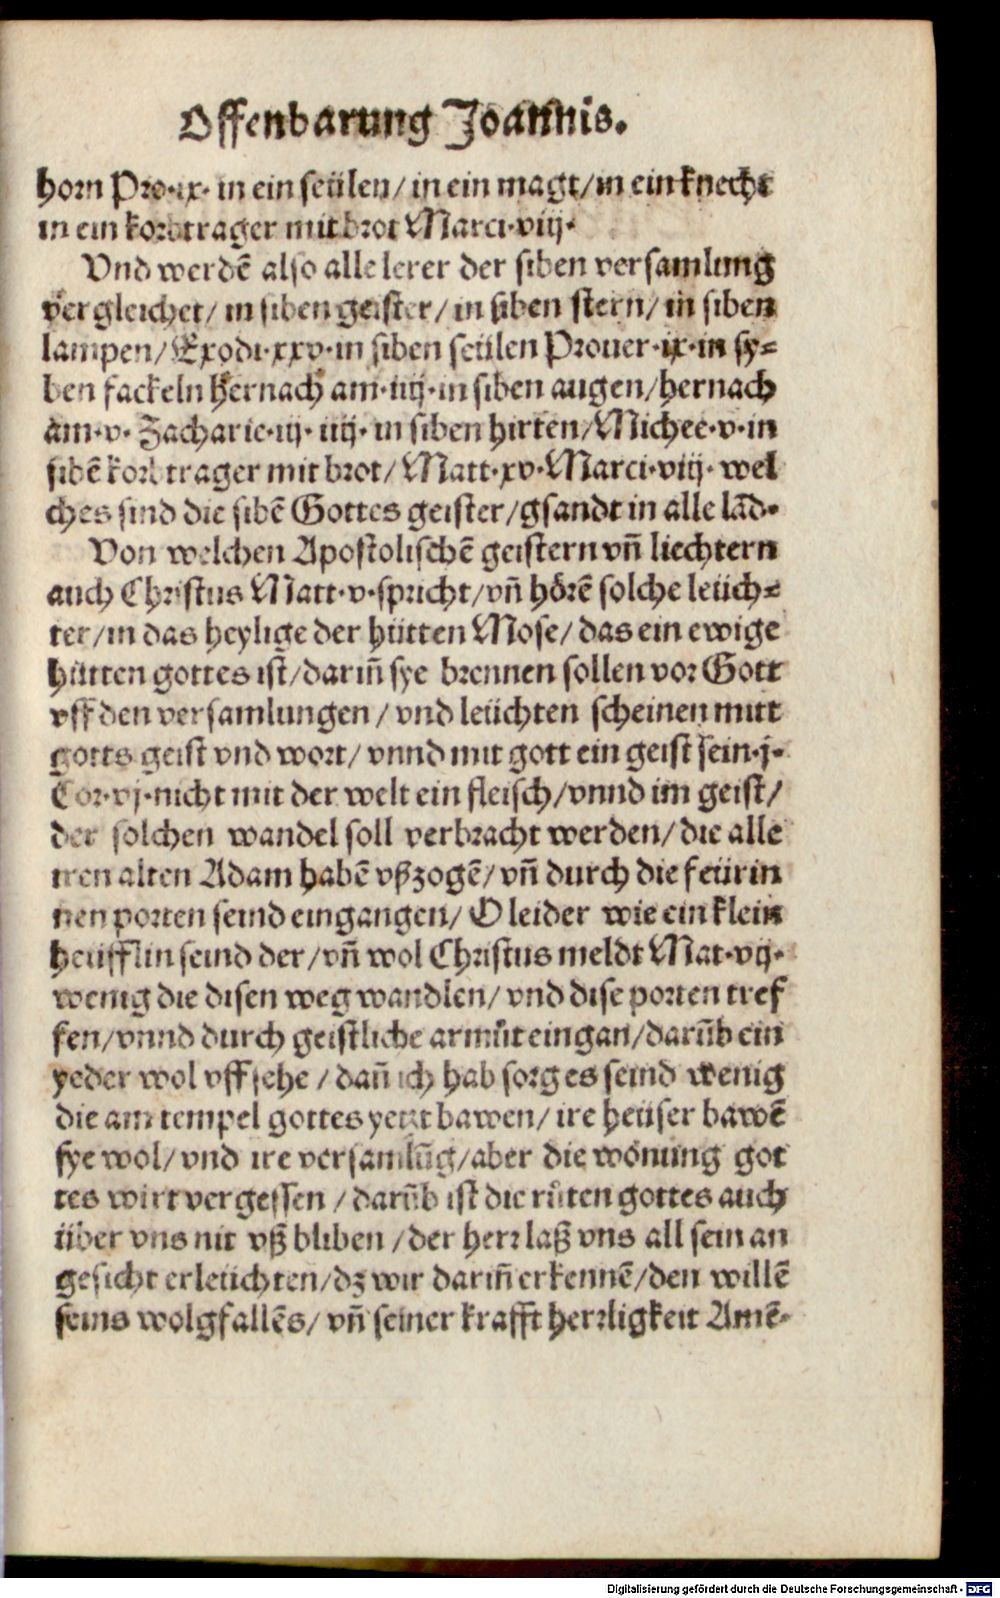 Offenbarung Joannis.
horn Pro·ix· in ein seülen/ in ein magt/ in ein knecht
in ein korbtrager mit brot Marci·viij·
Vnd werdē also alle lerer der siben versamlung
vergleichet/ in siben geister/ in siben stern/ in siben
lampen/ Exodi·xxv·in siben seülen Prouer·ix·in sy⸗
ben fackeln hernach am·iiij·in siben augen/ hernach
am·v· Zacharie·iij·iiij· in siben hirten/ Michee·v·in
sibē korb trager mit brot/ Matt·xv·Marci·viij· wel
ches sind die sibē Gottes geister/ gsandt in alle lād·
Von welchen Apostolischē geistern vn̄ liechtern
auch Christus Matt·v·spricht/ vn̄ hörē solche leüch⸗
ter/ in das heylige der hütten Mose/ das ein ewige
hütten gottes ist/ darin̄ sye brennen sollen vor Gott
vff den versamlungen/ vnd leüchten scheinen mitt
gotts geist vnd wort/ vnnd mit gott ein geist sein·j·
Cor·vj·nicht mit der welt ein fleisch/ vnnd im geist/
der solchen wandel soll verbracht werden/ die alle
iren alten Adam habē vßzogē/ vn̄ durch die feürin
nen porten seind eingangen/ O leider wie ein klein
heüfflin seind der/ vn̄ wol Christus meldt Mat·vij·
wenig die disen weg wandlen/ vnd dise porten tref
fen/ vnnd durch geistliche armůt eingan/ darūb ein
yeder wol vff sehe/ dan̄ ich hab sorg es seind wenig
die am tempel gottes yetzt bawen/ ire heüser bawē
sye wol/ vnd ire versamlūg/ aber die wonung got
tes wirt vergessen/ darūb ist die růten gottes auch
über vns nit vß bliben/ der herr laß vns all sein an
gesicht erleüchten/ dz wir darin̄ erkennē/ den willē
seins wolgfallēs/ vn̄ seiner krafft herrligkeit Amē·
Digitalisierung gefördert durch die Deutsche Forschungsgemeinschaft - DFG